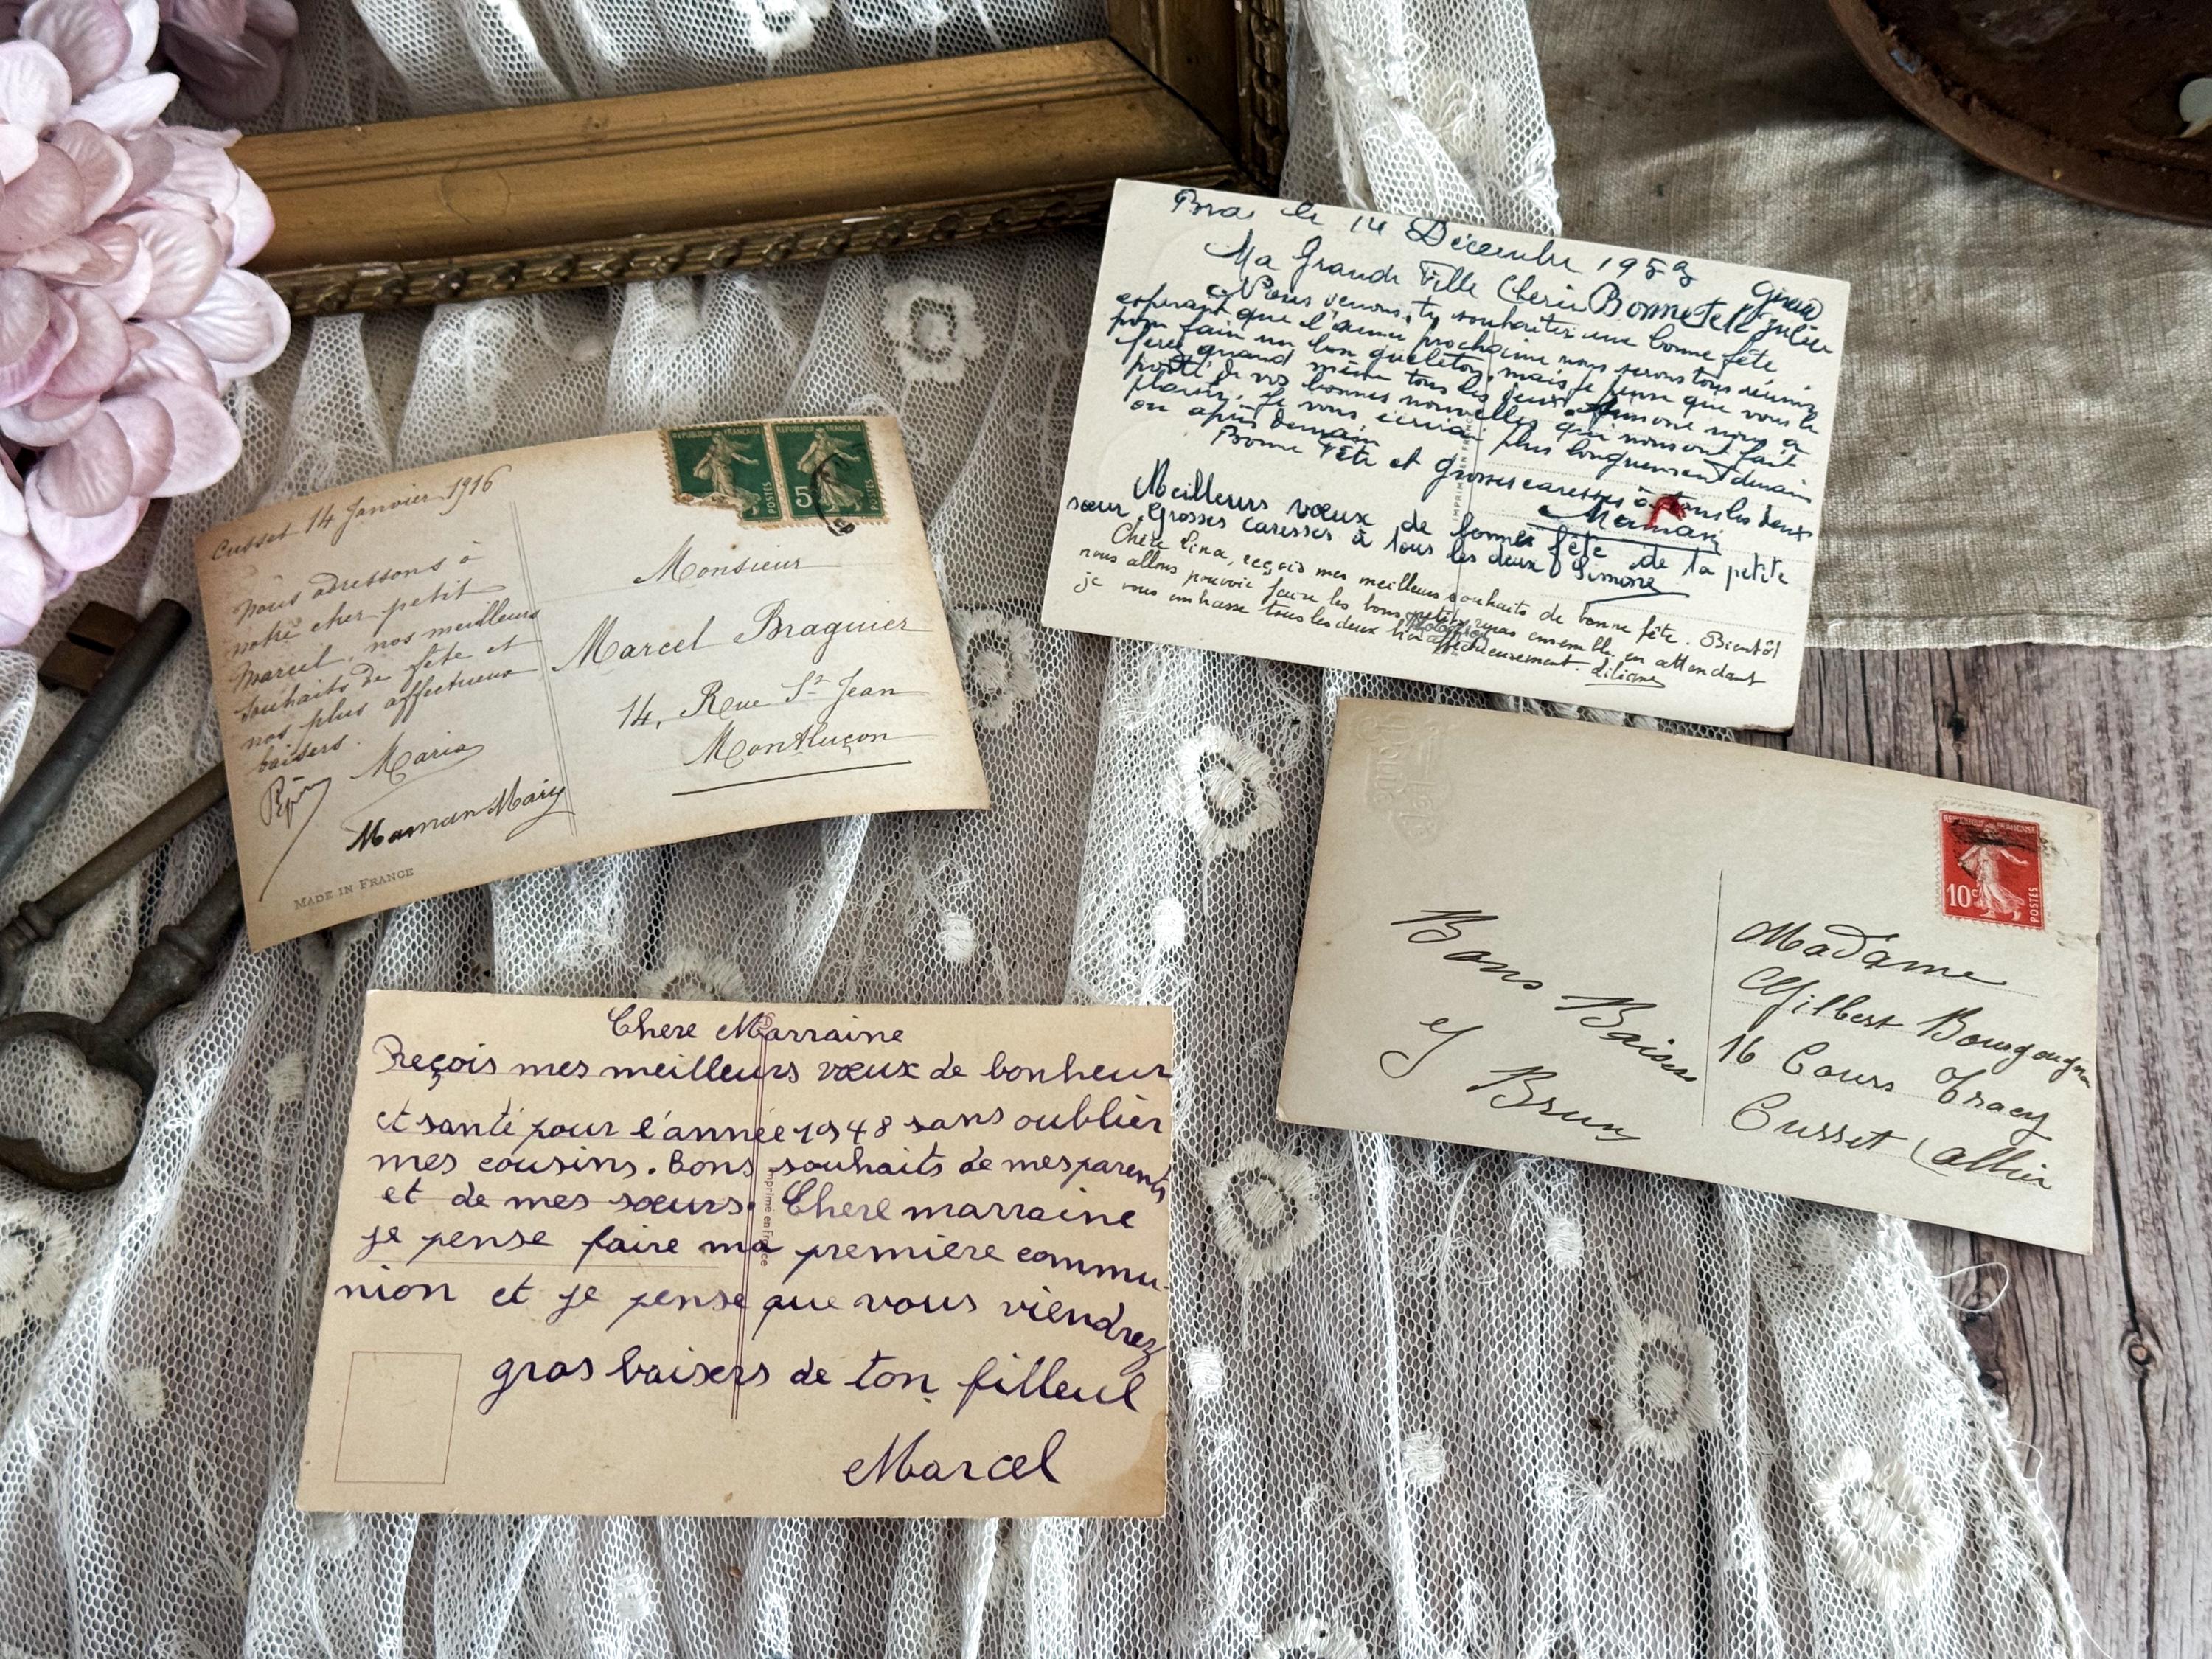 Cusset 14 Janvier 1916
Nous adressons à
notre cher petit
Marcel, nos meilleurs
souhaits de fête et
nos plus affectueux
baisers.
Maria
Maman Mary
MADE IN FRANCE
REPUBLIQUE FRANÇAISE
POSTES
REPUBLIQUE FRANÇAISE
5
POSTES
Monsieur
Marcel Braguier
14, Rue St Jean
Montluçon
le 14 Décembre 1953
Ma Grande Fille Cherie Bonne fête
Nous venons, ty souhaiter une bonne fête
esperant que l'année prochaine nous serons tous réunis
pour faire un bon gueleton, mais je pense que vous le
ferez quand même tous les deux. nous a
porté de vos bonnes nouvelles qui nous ont fait
plaisir, je vous écrirai plus longuement demain
ou après demain
Bonne Fête et grosses caresses à tous les deux
Maman
Meilleurs vœux de bonne fête de ta petite
sœur Grosses caresses à tous les deux Simone
Chère Lina, reçois mes meilleurs souhaits de bonne fête. Bientôt
nous allons pouvoir faire les bons petits repas ensemble. en attendant
je vous embrasse tous les deux affectueusement. Liliane
IMPRIMÉ EN FRANCE
Chere Marraine
Reçois mes meilleurs vœux de bonheur
et santé pour l'année 1948 sans oublier
mes cousins. Bons souhaits de mes parents
et de mes sœurs. Chere marraine
je pense faire ma première commu-
nion et je pense que vous viendrez
gros baisers de ton filleul
Marcel
Imprimé en France
REPUBLIQUE FRANÇAISE
10c
POSTES
Bons Baisers
Madame
Gilbert Bourgougnon
16 Cours Tracy
Cusset (Allier